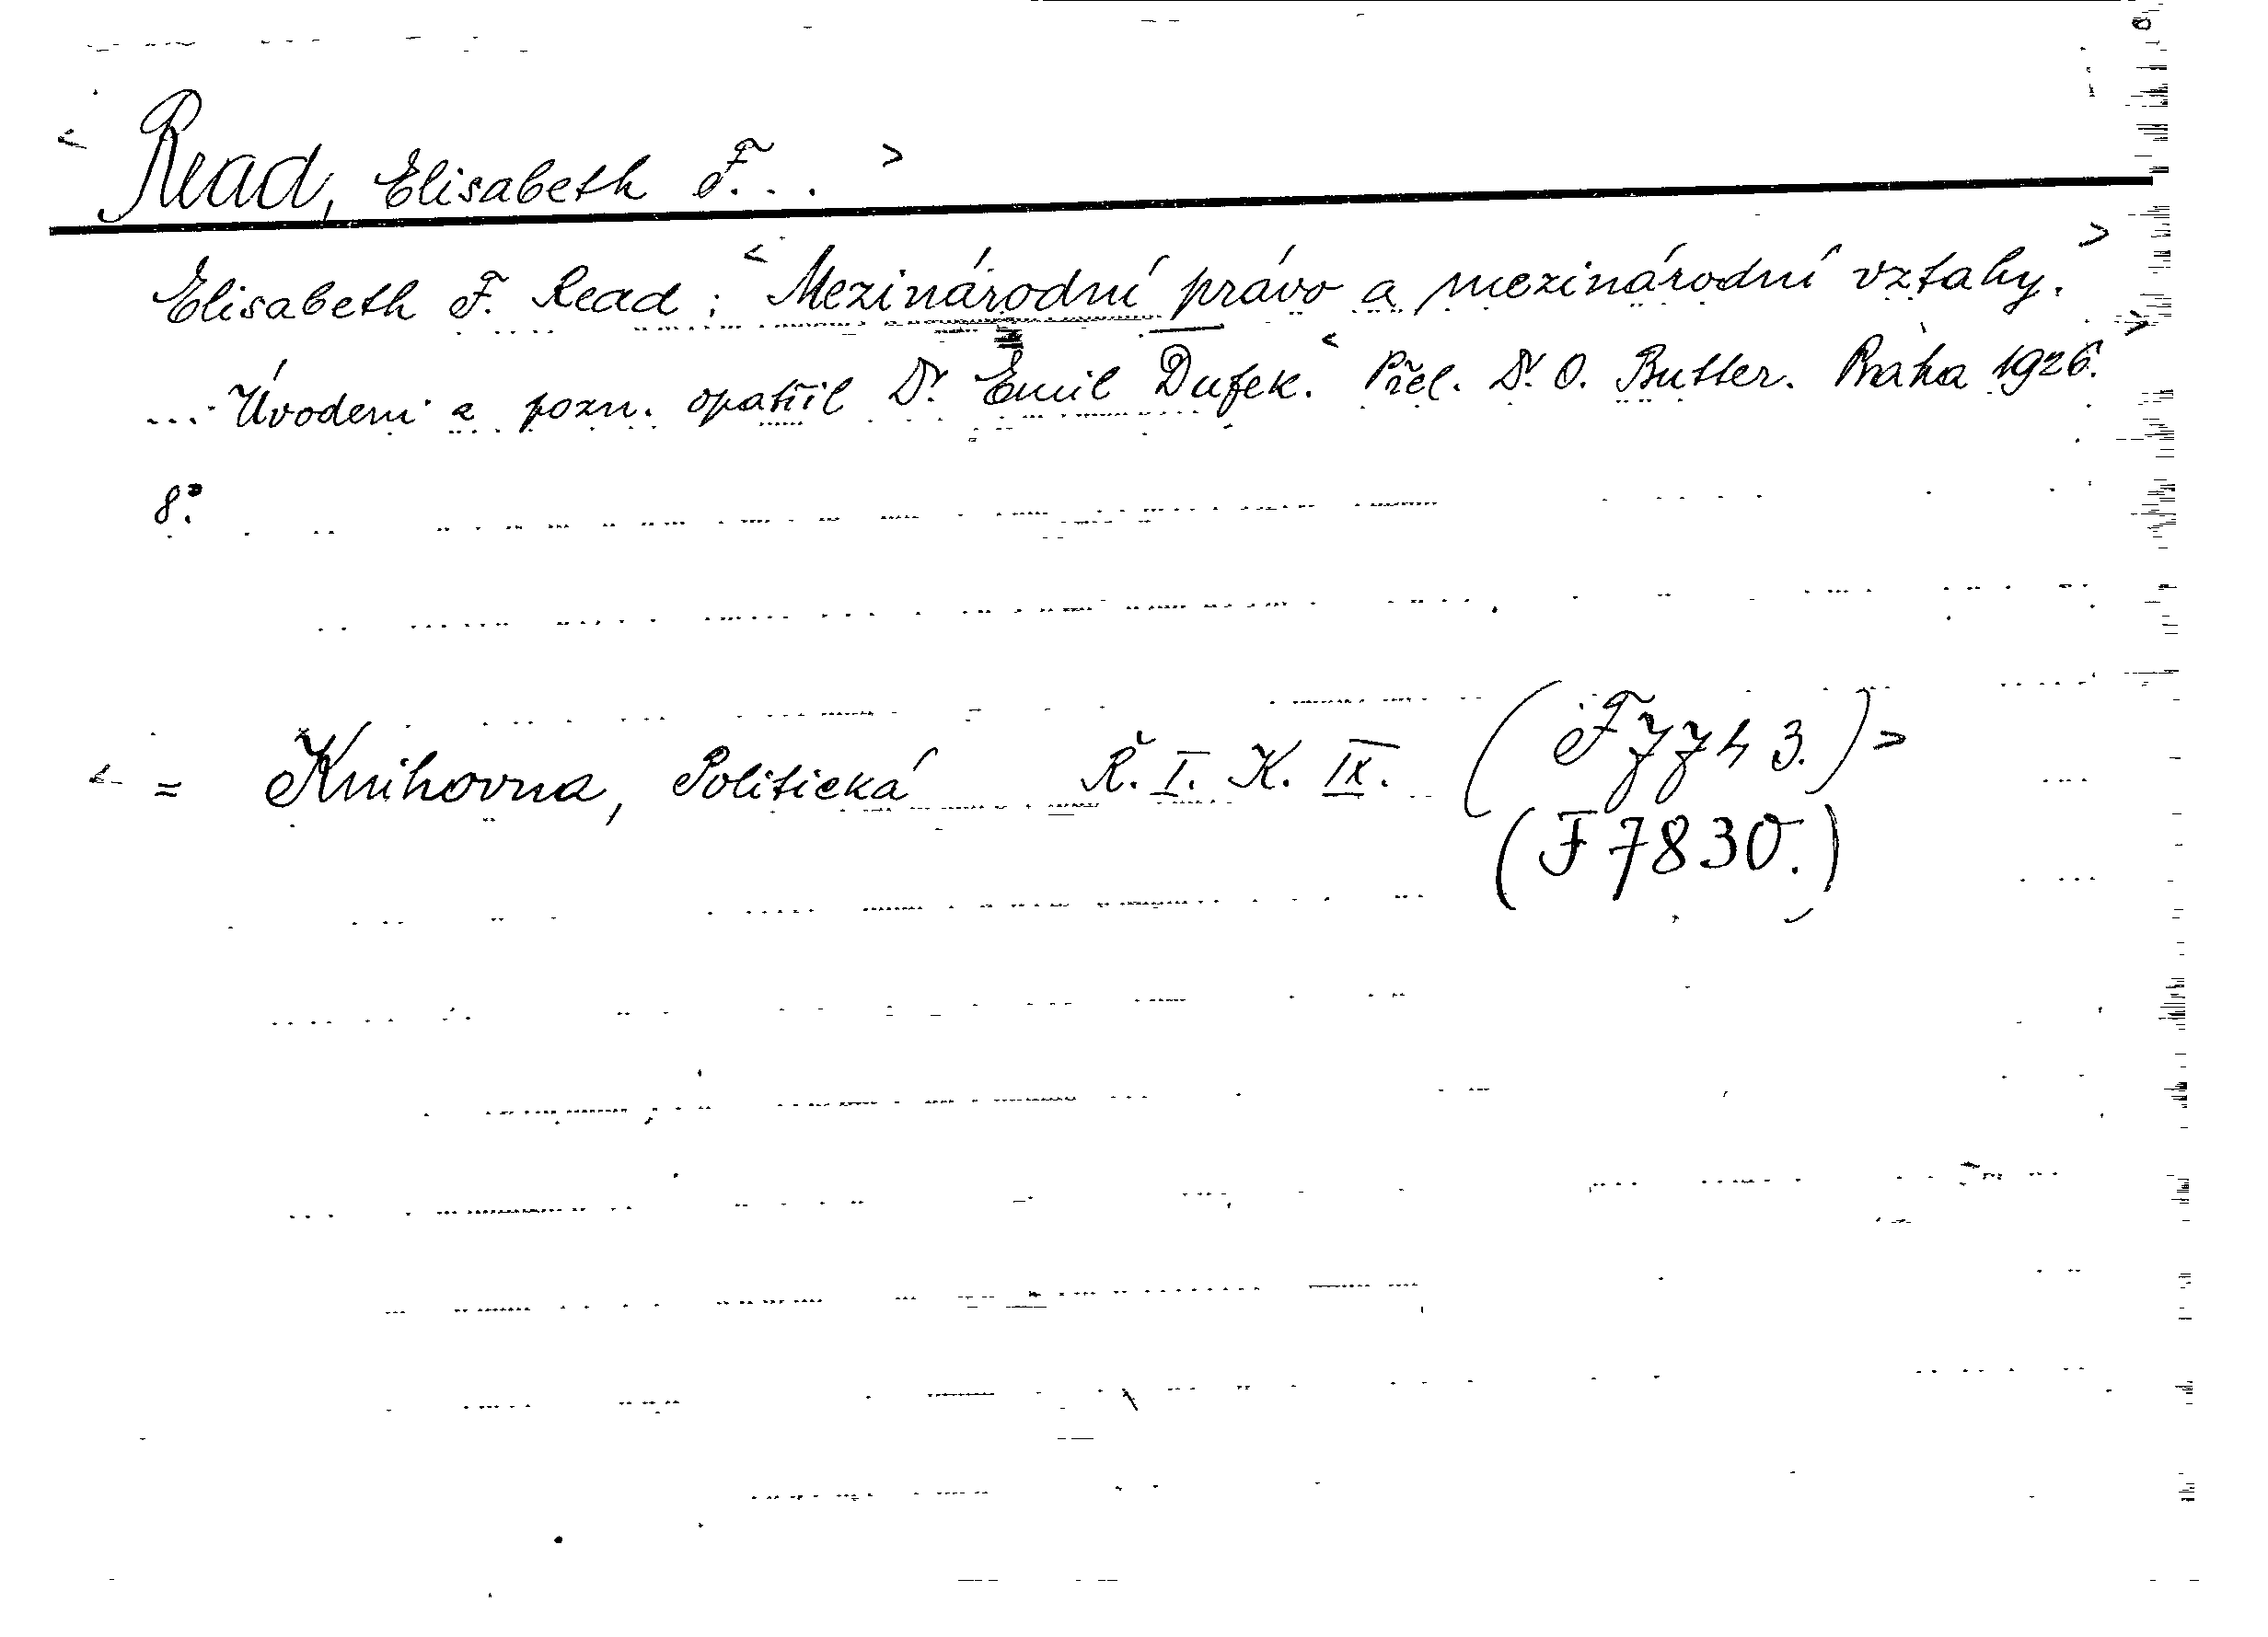 < Read, Elisabeth F... >
Elisabeth F. Read: < Mezinárodní právo a mezinárodní vztahy. >
... Úvodem a pozn. opatřil Dr. Emil Dufek. < Přel. Dr. O. Butter. Praha 1926. >
8°.
< = Knihovna, Politická Ř. I. K. IX. (F 7743.) >
(F 7830.)